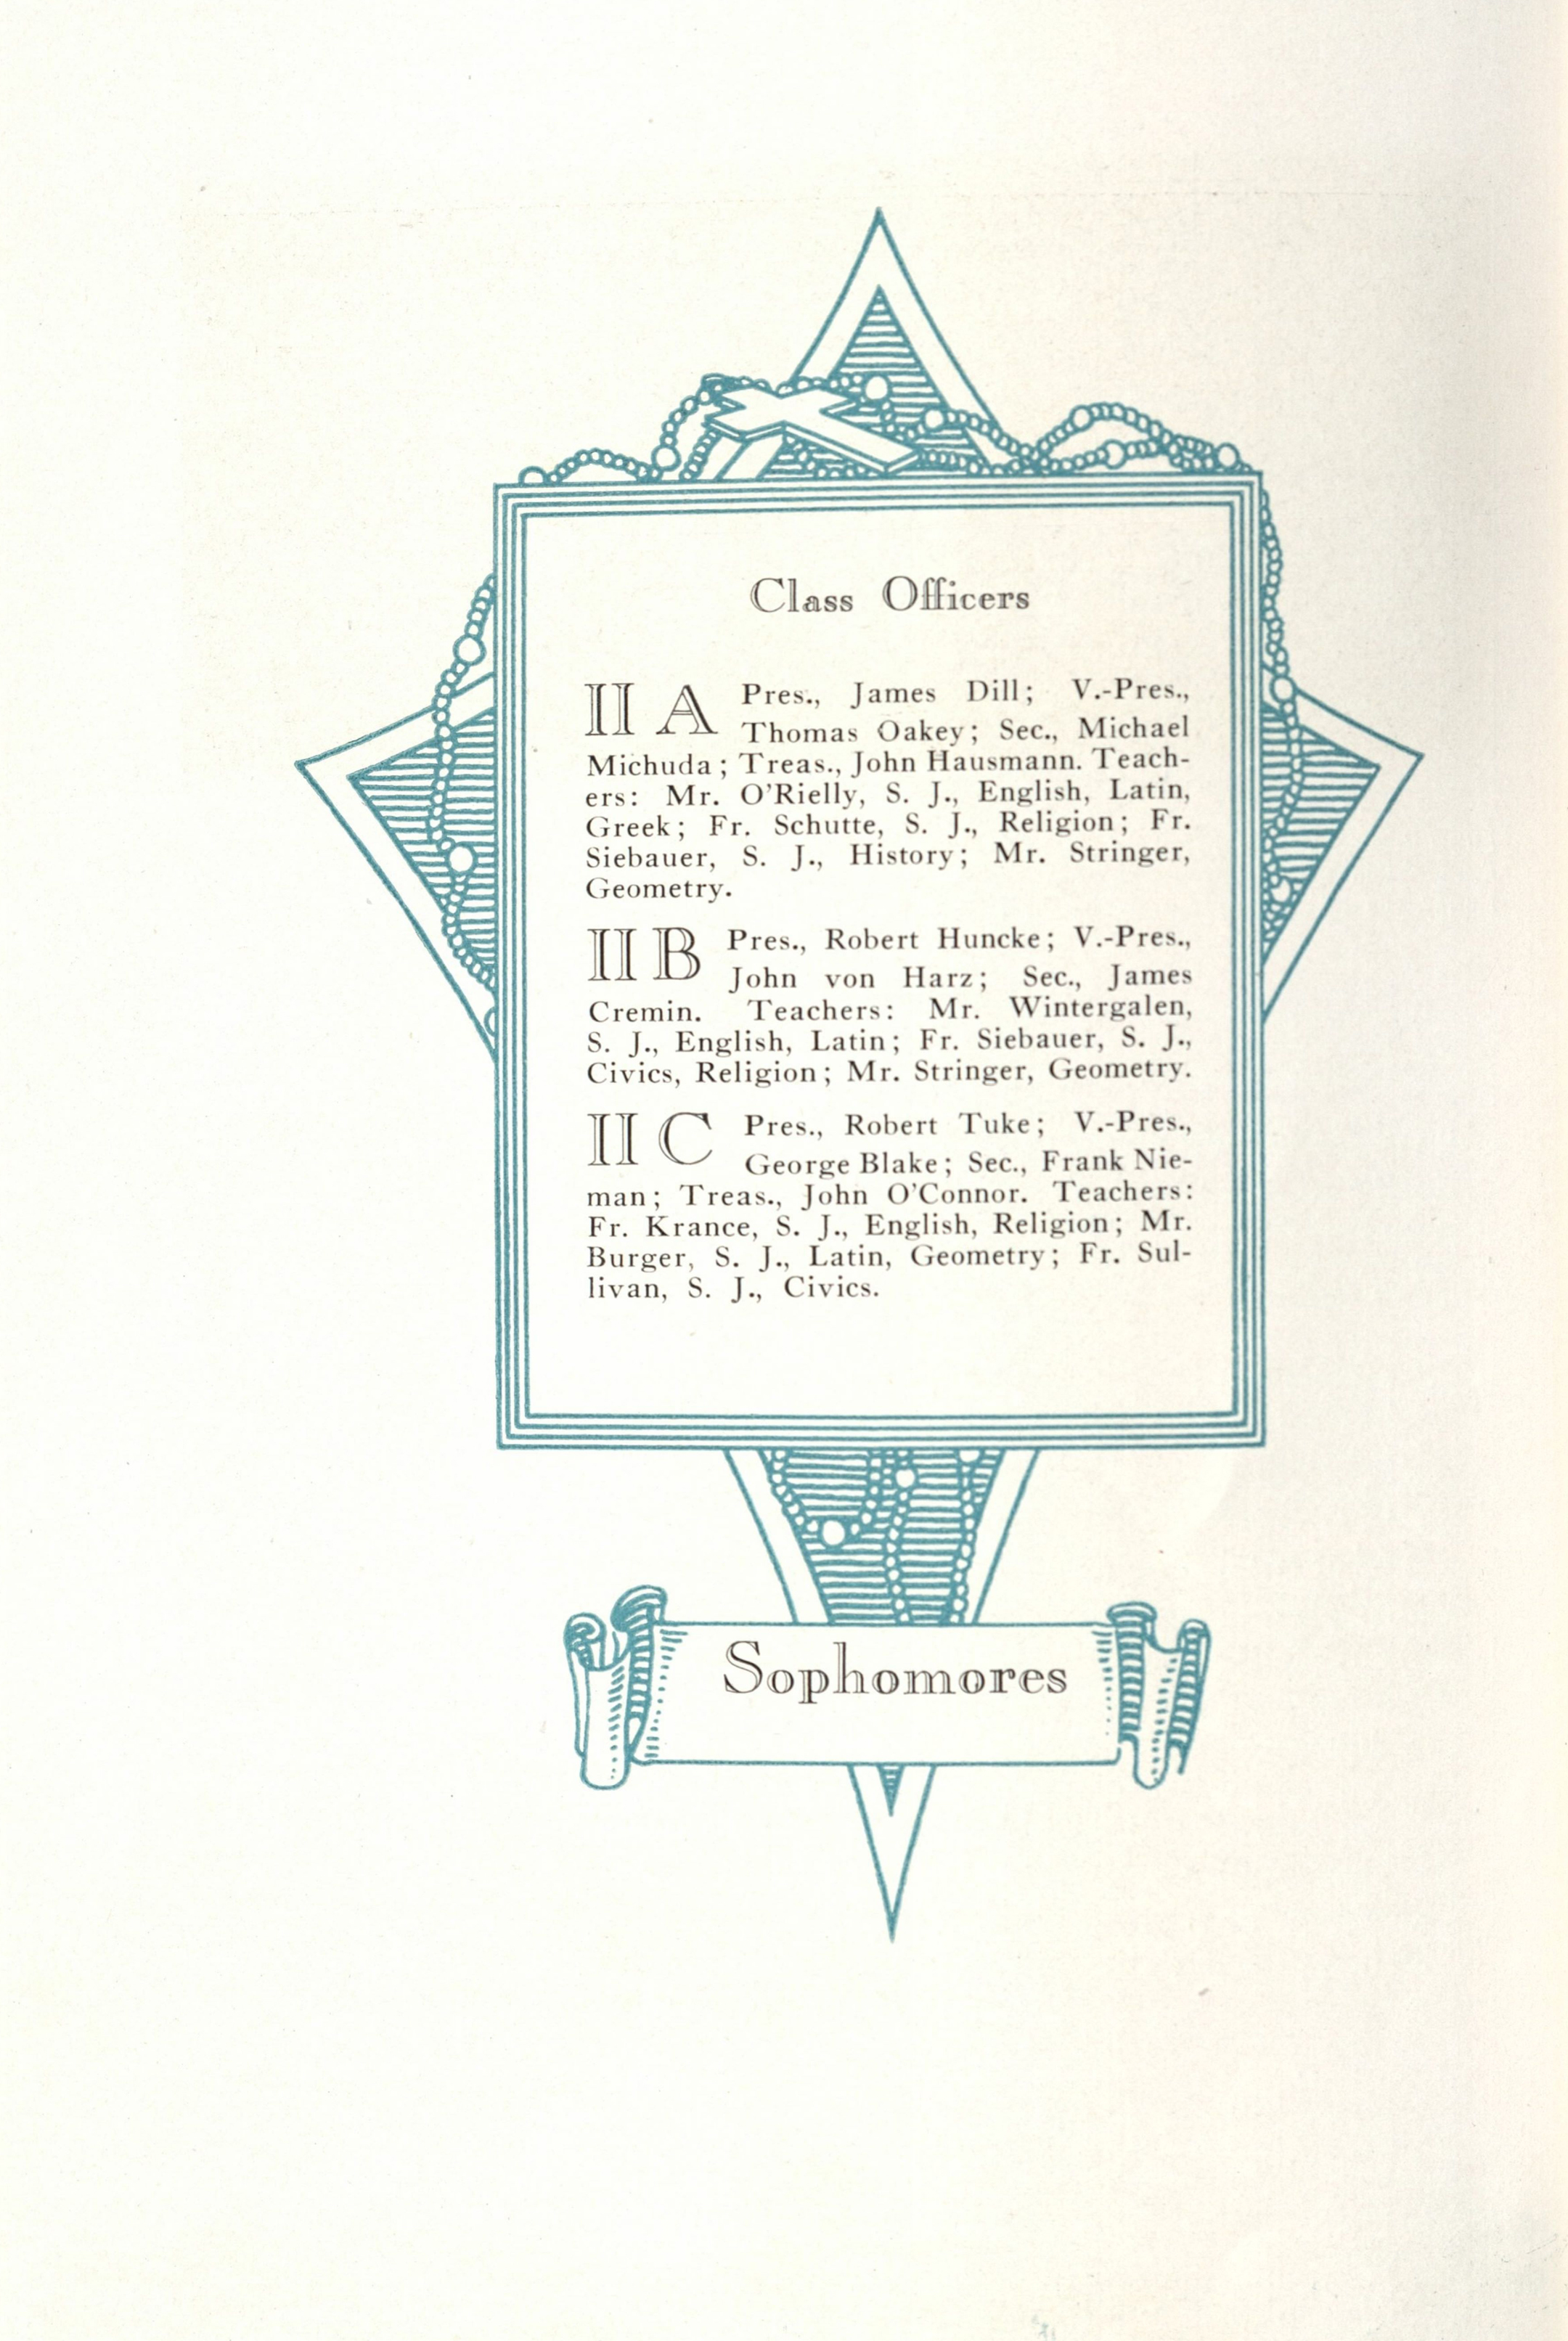 Class Officers
II A Pres., James Dill; V.-Pres.,
Thomas Oakey; Sec., Michael
Michuda; Treas., John Hausmann. Teach-
ers: Mr. O'Rielly, S. J., English, Latin,
Greek; Fr. Schutte, S. J., Religion; Fr.
Siebauer, S. J., History; Mr. Stringer,
Geometry.
II B Pres., Robert Huncke; V.-Pres.,
John von Harz; Sec., James
Cremin. Teachers: Mr. Wintergalen,
S. J., English, Latin; Fr. Siebauer, S. J.,
Civics, Religion; Mr. Stringer, Geometry.
II C Pres., Robert Tuke; V.-Pres.,
George Blake; Sec., Frank Nie-
man; Treas., John O'Connor. Teachers:
Fr. Krance, S. J., English, Religion; Mr.
Burger, S. J., Latin, Geometry; Fr. Sul-
livan, S. J., Civics.
Sophomores